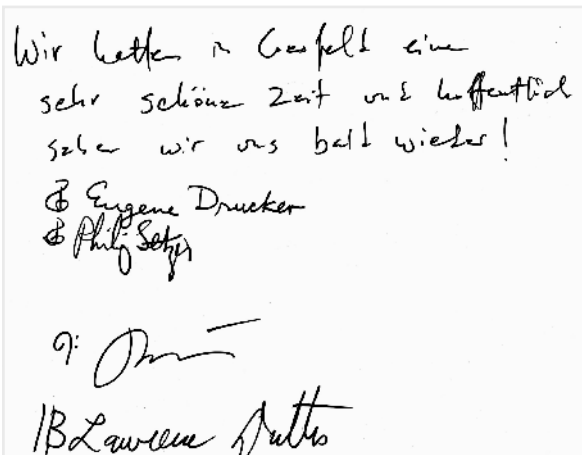 Wir hatten in Coesfeld eine
sehr schöne Zeit und hoffentlich
sehen wir uns bald wieder!
Eugene Drucker
Philip Setzer
Lawrence Dutton